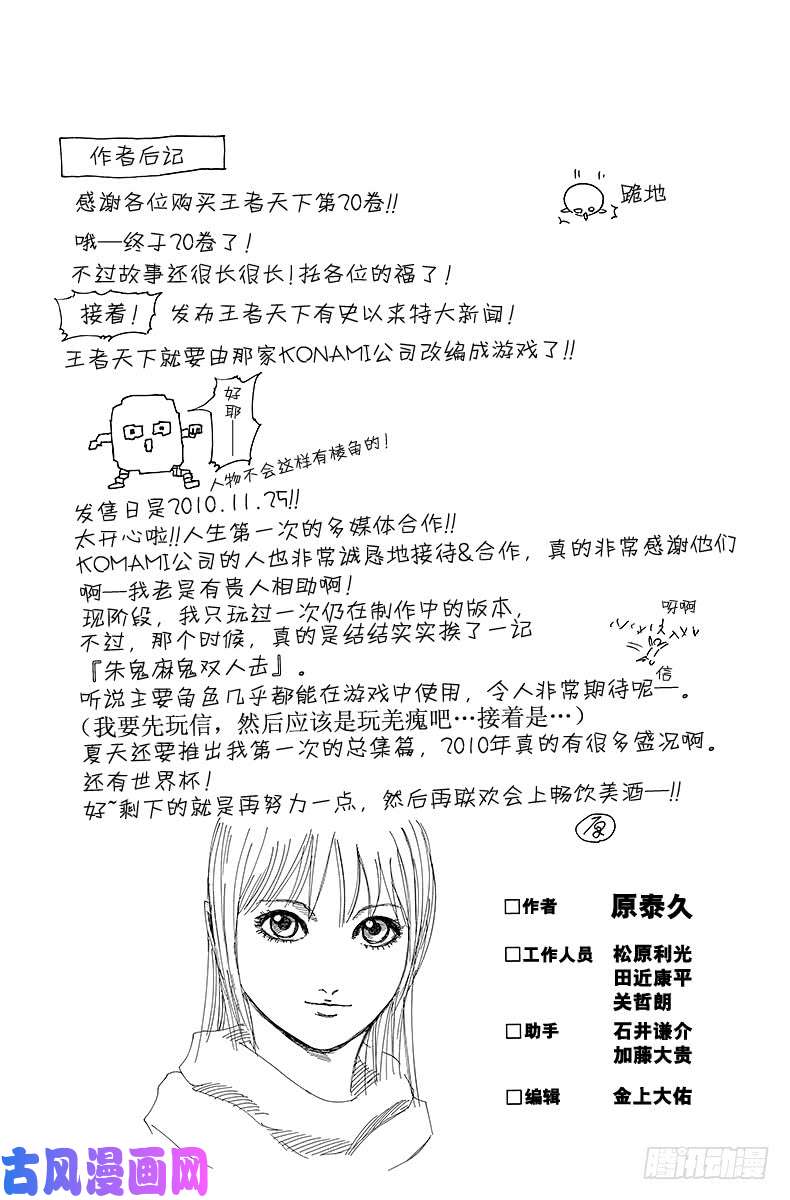 作者后记
感谢各位购买王者天下第20卷!!
跪地
哦—终于20卷了!
不过故事还很长很长!托各位的福了!
接着!
发布王者天下有史以来特大新闻!
王者天下就要由那家KONAMI公司改编成游戏了!!
好耶——
人物不会这样有棱角的!
发售日是2010.11.25!!
太开心啦!!人生第一次的多媒体合作!!
KOMAMI公司的人也非常诚恳地接待&合作，真的非常感谢他们
啊—我老是有贵人相助啊!
现阶段，我只玩过一次仍在制作中的版本，
呀啊
不过，那个时候，真的是结结实实挨了一记
『朱鬼麻鬼双人去』。
信
听说主要角色几乎都能在游戏中使用，令人非常期待呢—。
（我要先玩信，然后应该是玩羌瘣吧…接着是…）
夏天还要推出我第一次的总集篇，2010年真的有很多盛况啊。
还有世界杯!
好~剩下的就是再努力一点，然后再联欢会上畅饮美酒—!!
原
□作者 原泰久
□工作人员 松原利光
田近康平
关哲朗
□助手 石井谦介
加藤大贵
□编辑 金上大佑
古风漫画网
腾讯动漫